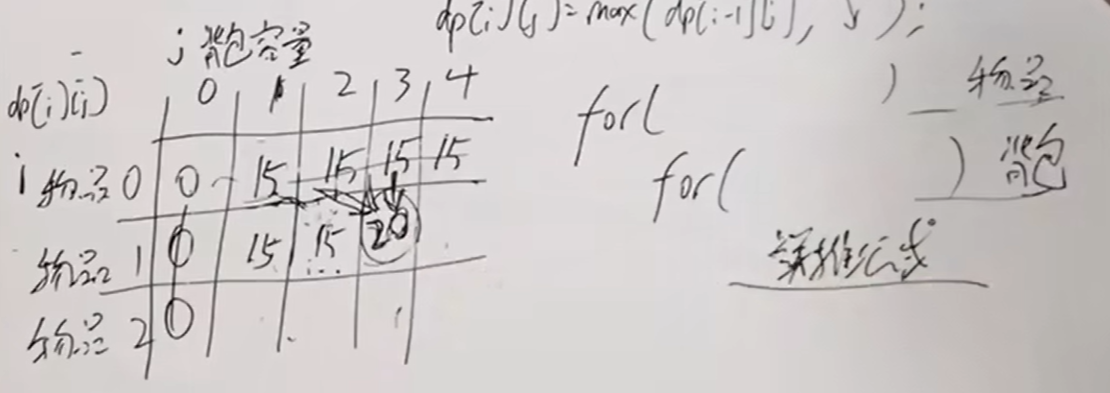 dp[i][j]=max(dp[i-1][j], ↓ );
j 背包容量
dp[i][j] 0 1 2 3 4
i 物品0 0 15 15 15 15
物品1 0 15 15 20
物品2 0
for( ) 物品
for( ) 背包
递推公式